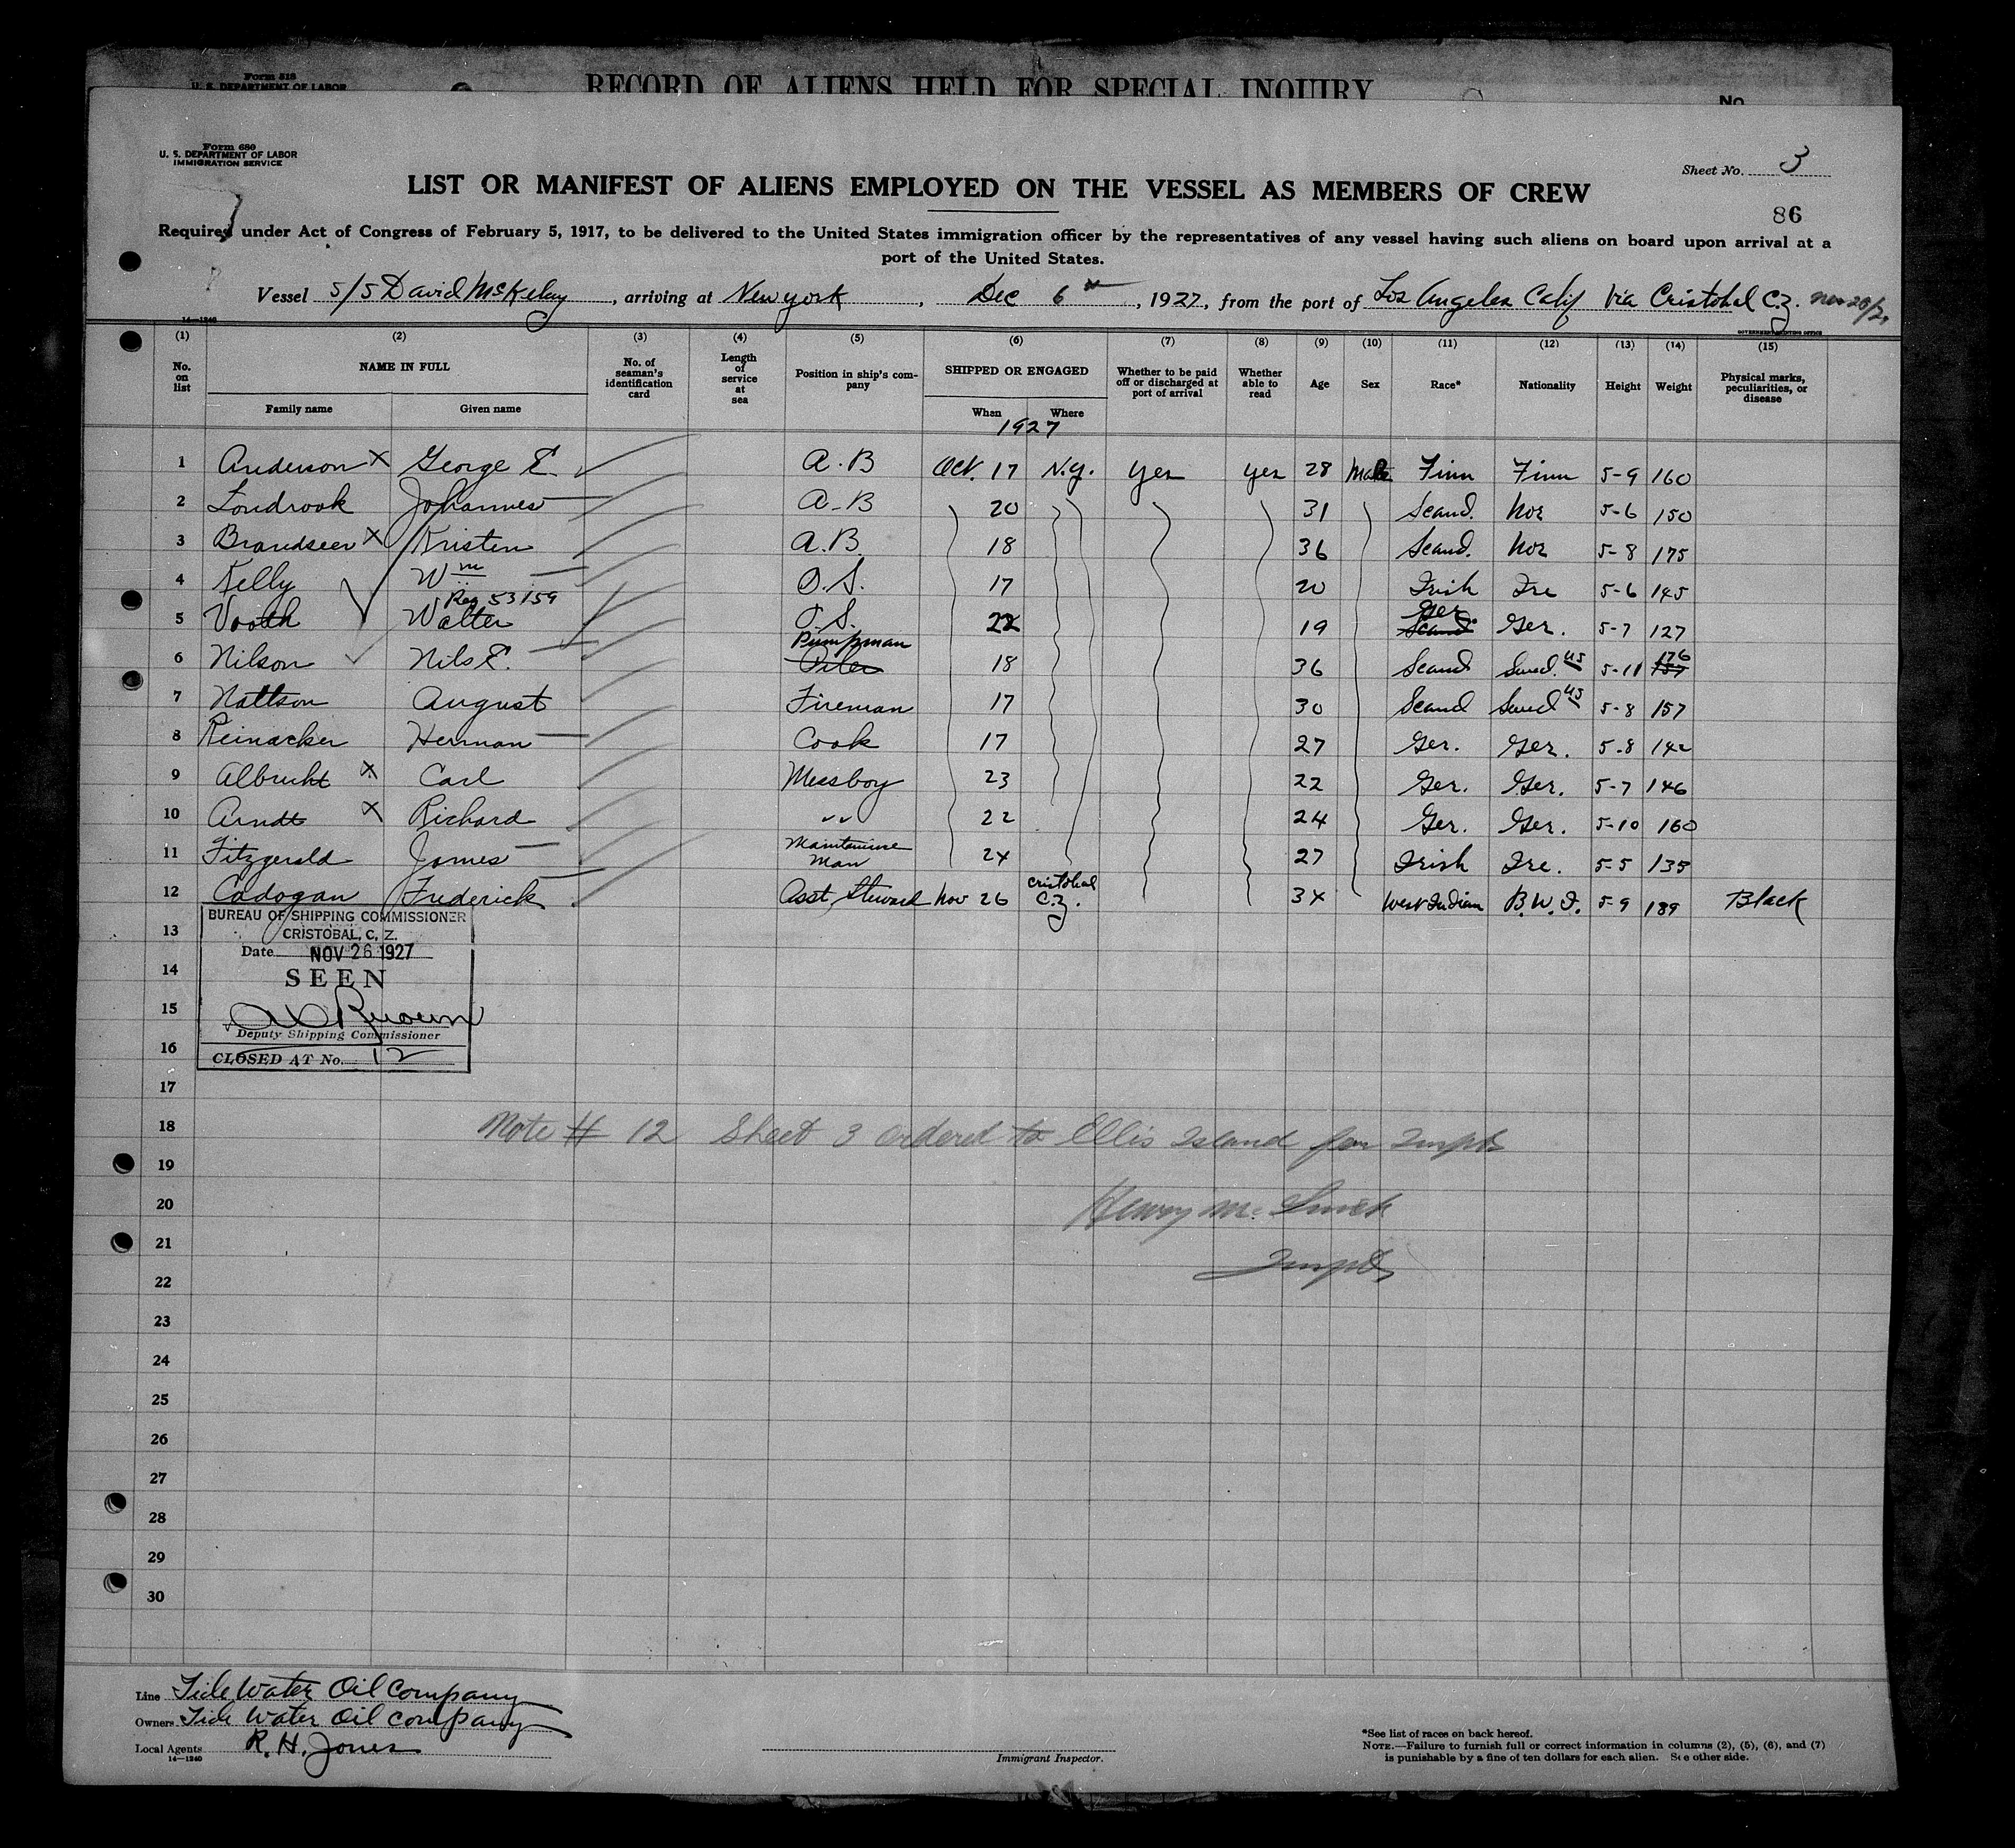 Form 518
U. S. DEPARTMENT OF LABOR
RECORD OF ALIENS HELD FOR SPECIAL INQUIRY
No.
Form 680
U. S. DEPARTMENT OF LABOR
IMMIGRATION SERVICE
Sheet No. 3
LIST OR MANIFEST OF ALIENS EMPLOYED ON THE VESSEL AS MEMBERS OF CREW
86
Required under Act of Congress of February 5, 1917, to be delivered to the United States immigration officer by the representatives of any vessel having such aliens on board upon arrival at a
port of the United States.
Vessel S/S David McKelvy, arriving at New York, Dec 6th, 1927, from the port of Los Angeles Calif Via Cristobal C.Z.
14—1240
GOVERNMENT PRINTING OFFICE
(1) (2) (3) (4) (5) (6) (7) (8) (9) (10) (11) (12) (13) (14) (15)
No. on list NAME IN FULL No. of seaman's identification card Length of service at sea Position in ship's company SHIPPED OR ENGAGED Whether to be paid off or discharged at port of arrival Whether able to read Age Sex Race* Nationality Height Weight Physical marks, peculiarities, or disease
Family name Given name When Where
1927
1 Anderson X George E. A.B Oct. 17 N.Y. Yes Yes 28 Male Finn Finn 5-9 160
2 Londrook Johannes A-B 20 31 Scand. Nor 5-6 150
3 Brandseer X Kristen A.B. 18 36 Scand. Nor 5-8 175
4 Kelly Wm O.S. 17 20 Irish Ire 5-6 145
Reg 53159
5 Vooth Walter O.S. 22 19 Ger Scand. Ger. 5-7 127
Pumpman
6 Nilson Nils E. Oiler 18 36 Scand Swed. US 5-11 176 157
7 Nattson August Fireman 17 30 Scand Swed US 5-8 157
8 Reinacker Herman Cook 17 27 Ger. Ger. 5-8 142
9 Albrecht X Carl Messboy 23 22 Ger. Ger. 5-7 146
10 Arndt X Richard " 22 24 Ger. Ger. 5-10 160
11 Fitzgerald James Maintainse man 24 27 Irish Ire. 5-5 135
12 Cadogan Frederick Asst. Steward Nov 26 Cristobal C.Z. 34 West Indian B.W.I. 5-9 189 Black
BUREAU OF SHIPPING COMMISSIONER
13
CRISTOBAL, C. Z.
Date NOV 26 1927
14
SEEN
15
Deputy Shipping Commissioner
16
CLOSED AT No. 12
17
18 Note # 12 Sheet 3 ordered to Ellis Island for Inspt
19
20 Henry M. Smith
21 Inspt
22
23
24
25
26
27
28
29
30
Line Tide Water Oil Company
Owners Tide Water Oil Company
Local Agents R. H. Jones
14—1240
Immigrant Inspector.
*See list of races on back hereof.
NOTE.—Failure to furnish full or correct information in columns (2), (5), (6), and (7)
is punishable by a fine of ten dollars for each alien. See other side.